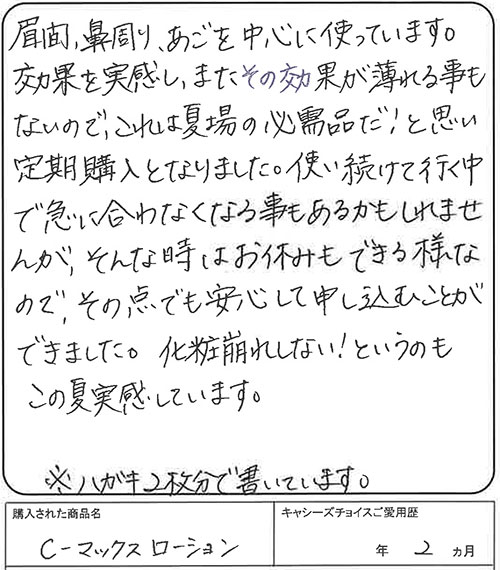 眉間、鼻周り、あごを中心に使っています。
効果を実感し、またその効果が薄れる事も
ないので、これは夏場の必需品だ!と思い
定期購入となりました。使い続けて行く中
で急に合わなくなる事もあるかもしれませ
んが、そんな時はお休みもできる様な
ので、その点でも安心して申し込むことが
できました。化粧崩れしない!というのも
この夏実感しています。
※ハガキ2枚分で書いています。
購入された商品名
C-マックスローション
キャシーズチョイスご愛用歴
年 2 カ月